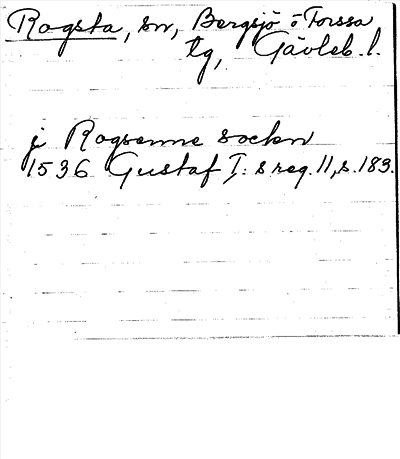 Rogsta, sn, Bergsjö o Forssa
tg, Gävleb. l.
j Rogsenne sockn
1536 Gustaf I: s reg. 11, s. 183.